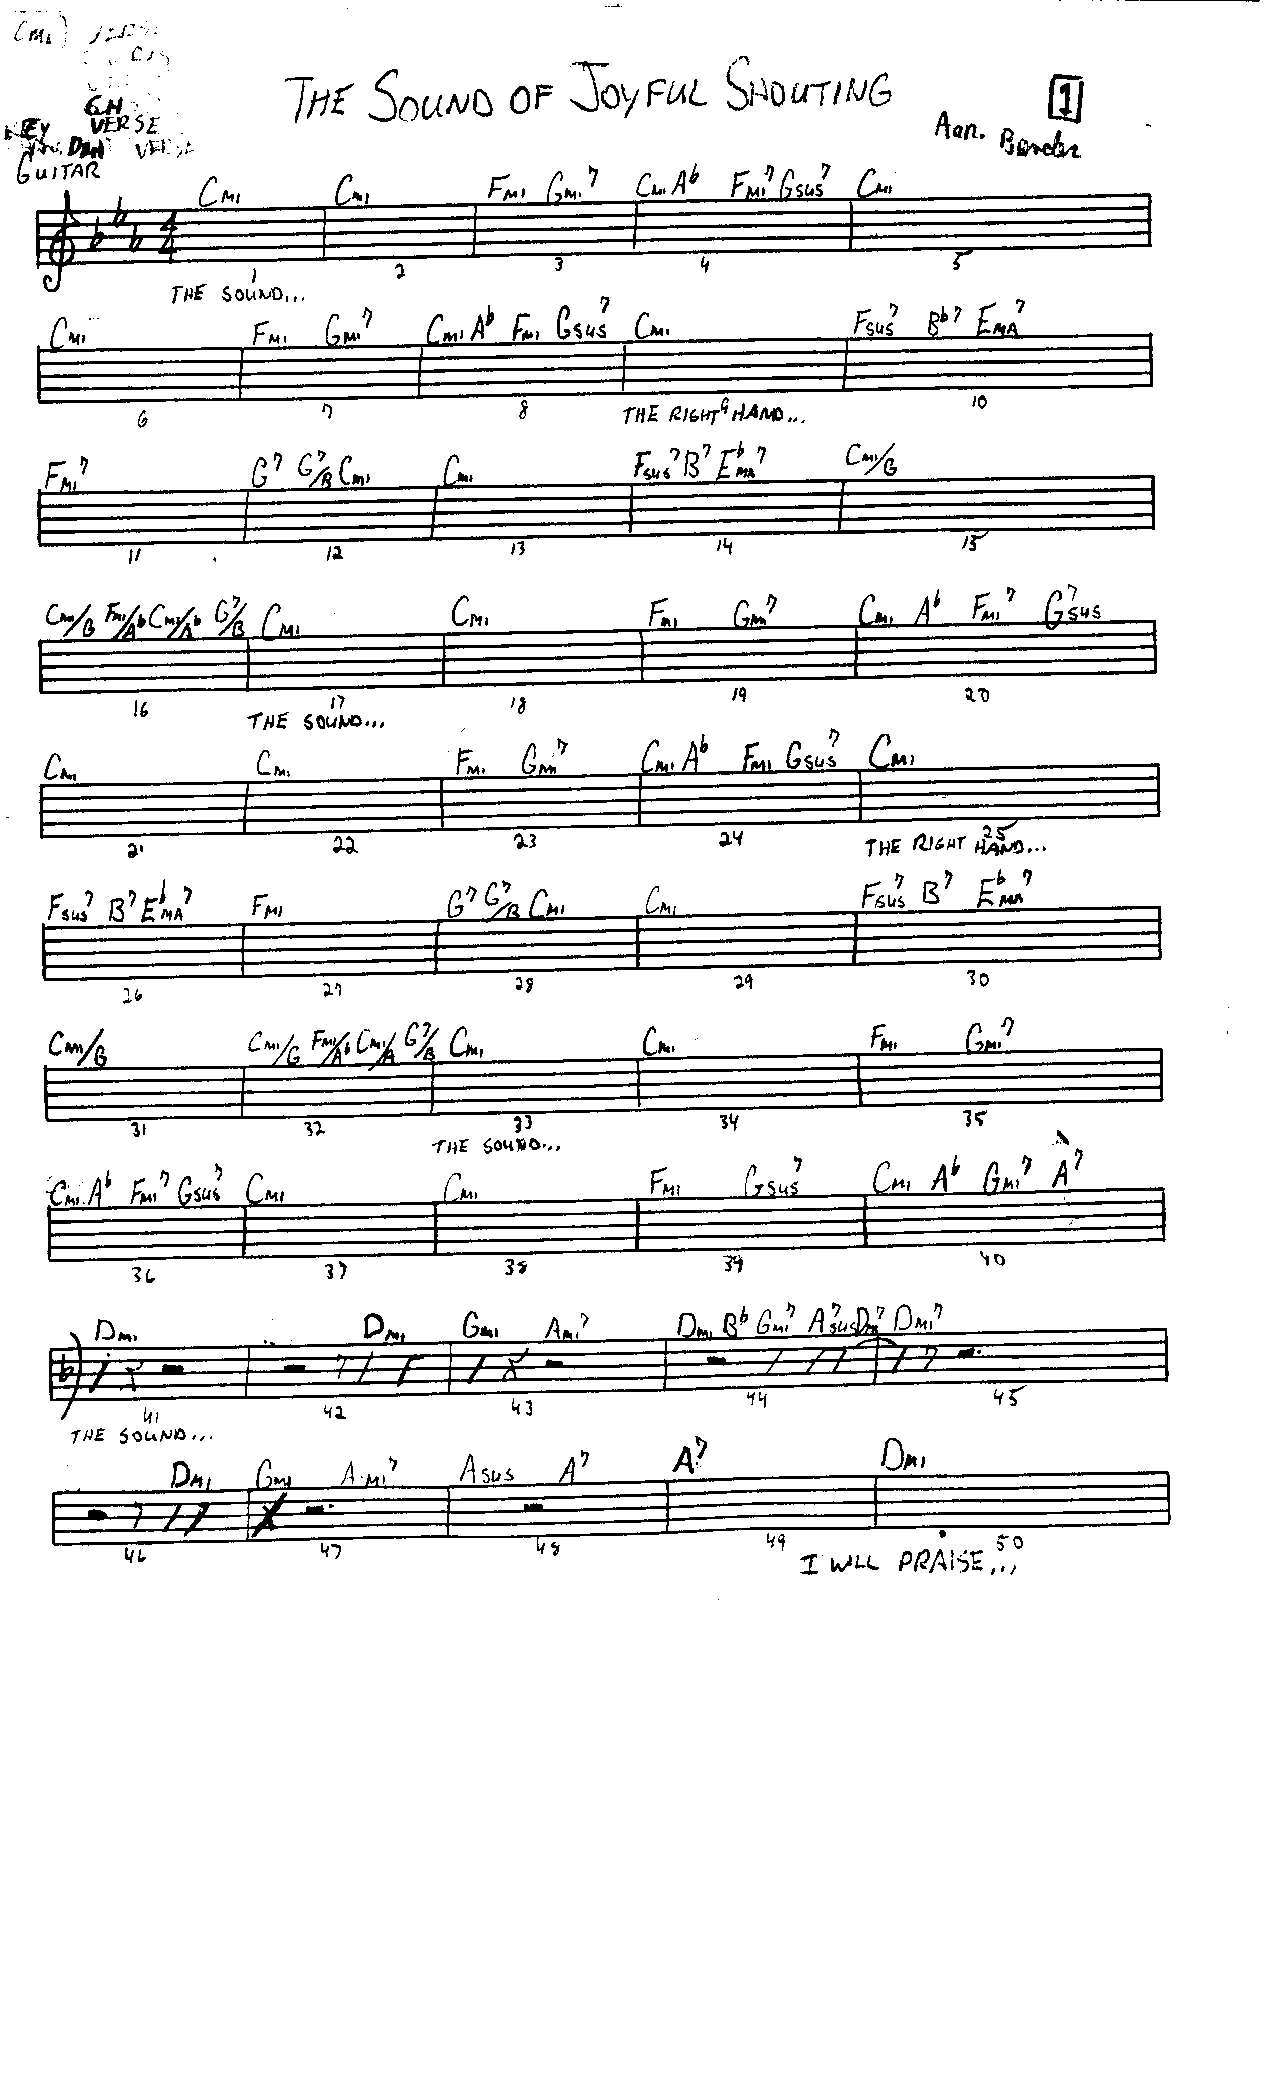 (Cmi) VERSE
CH
VERSE
KEY
Dmi VERSE
THE SOUND OF JOYFUL SHOUTING
1
Arr. Bender
GUITAR
Cmi Cmi Fmi Gmi7 Cmi Ab Fmi7 Gsus7 Cmi
4
4
1 2 3 4 5
THE SOUND...
Cmi Fmi Gmi7 Cmi Ab Fmi Gsus7 Cmi Fsus7 Bb7 Ema7
6 7 8 9 10
THE RIGHT HAND...
Fmi7 G7 G7/B Cmi Cmi Fsus7 B7 Ebma7 Cmi/G
11 12 13 14 15
Cmi/G Fmi/Ab Cmi/Ab G7/B Cmi Cmi Fmi Gmi7 Cmi Ab Fmi7 G7sus
16 17 18 19 20
THE SOUND...
Cmi Cmi Fmi Gmi7 Cmi Ab Fmi Gsus7 Cmi
21 22 23 24 25
THE RIGHT HAND...
Fsus7 B7 Ebma7 Fmi G7 G7/B Cmi Cmi Fsus7 B7 Ebma7
26 27 28 29 30
Cmi/G Cmi/G Fmi/Ab Cmi/A G7/B Cmi Cmi Fmi Gmi7
31 32 33 34 35
THE SOUND...
Cmi Ab Fmi7 Gsus7 Cmi Cmi Fmi Gsus7 Cmi Ab Gmi7 A7
36 37 38 39 40
Dmi Dmi Gmi Ami7 Dmi Bb Gmi7 A7sus Dmi7 Dmi7
41 42 43 44 45
THE SOUND...
Dmi Gmi Ami7 Asus A7 A7 Dmi
46 47 48 49 50
I WILL PRAISE...